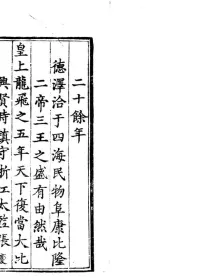 二十餘年
德澤洽于四海民物阜康比隆
二帝三王之盛有由然哉
皇上龍飛之五年天下復當大比
興賢時鎮守浙江太監張